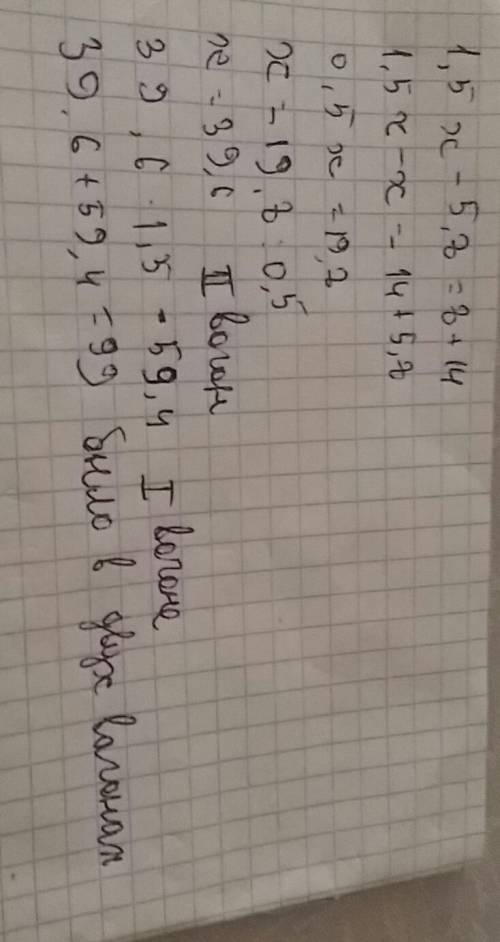 1,5 x - 5,8 = x + 14
1,5 x - x = 14 + 5,8
0,5 x = 19,8
x = 19,8 : 0,5
x = 39,6 II вагон
39,6 · 1,5 = 59,4 I вагоне
39,6 + 59,4 = 99 было в двух вагонах